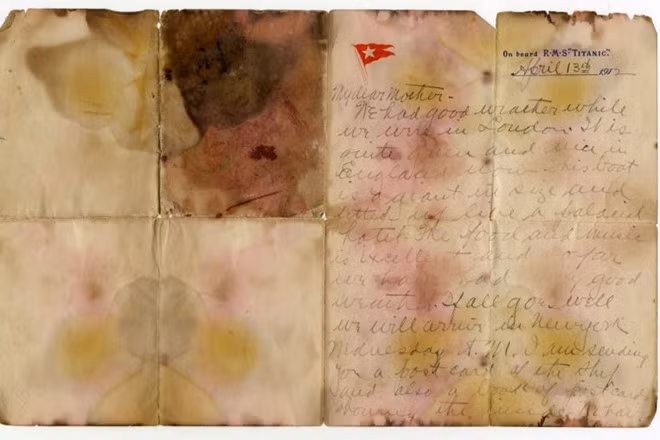 On board R·M·S "TITANIC".
April 13th 1912
My dear Mother-
We had good weather while
we were in London. It is
quite green and nice in
England now. This boat
is a giant in size and
fitted up like a palacial
hotel. The food and music
is excellent and so far
we have had good
weather. If all goes well
we will arrive in New York
Wednesday A. M. I am sending
you a post card of the ship
and also a book of post cards
showing the inside